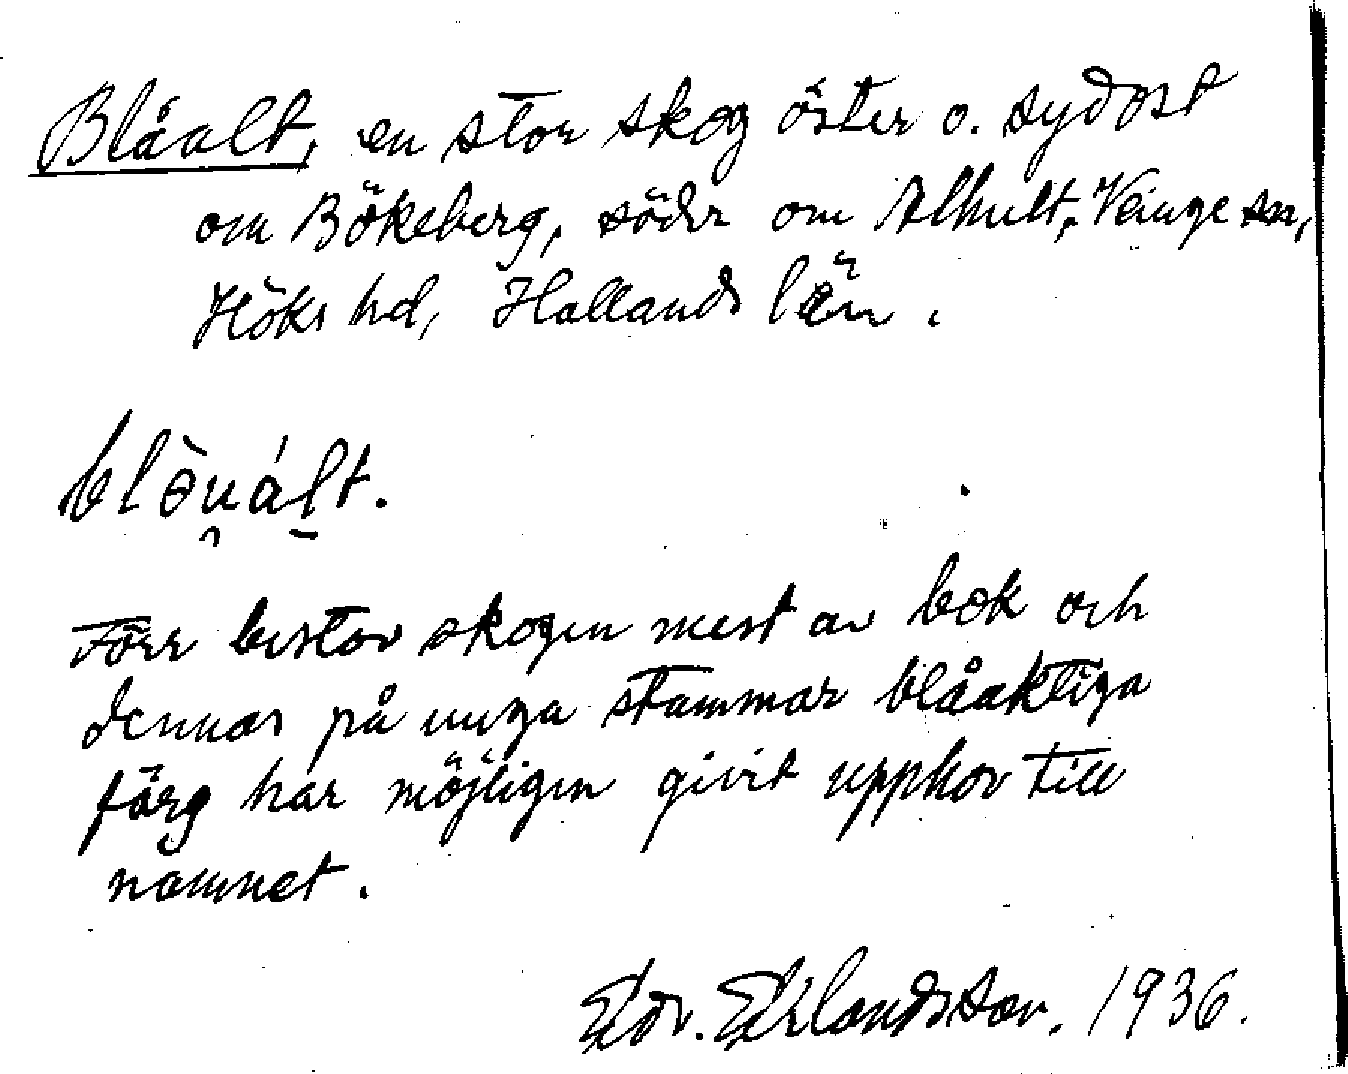 Blåalt, en stor skog öster o. sydost
om Bökeberg, söder om Alhult, Veinge sn,
Höks hd, Hallands län.
blòu̯ál̠t.
Förr bestod skogen mest av bok och
dennas på unga stammar blåaktiga
färg har möjligen givit upphov till
namnet.
Edv. Erlandsson. 1936.